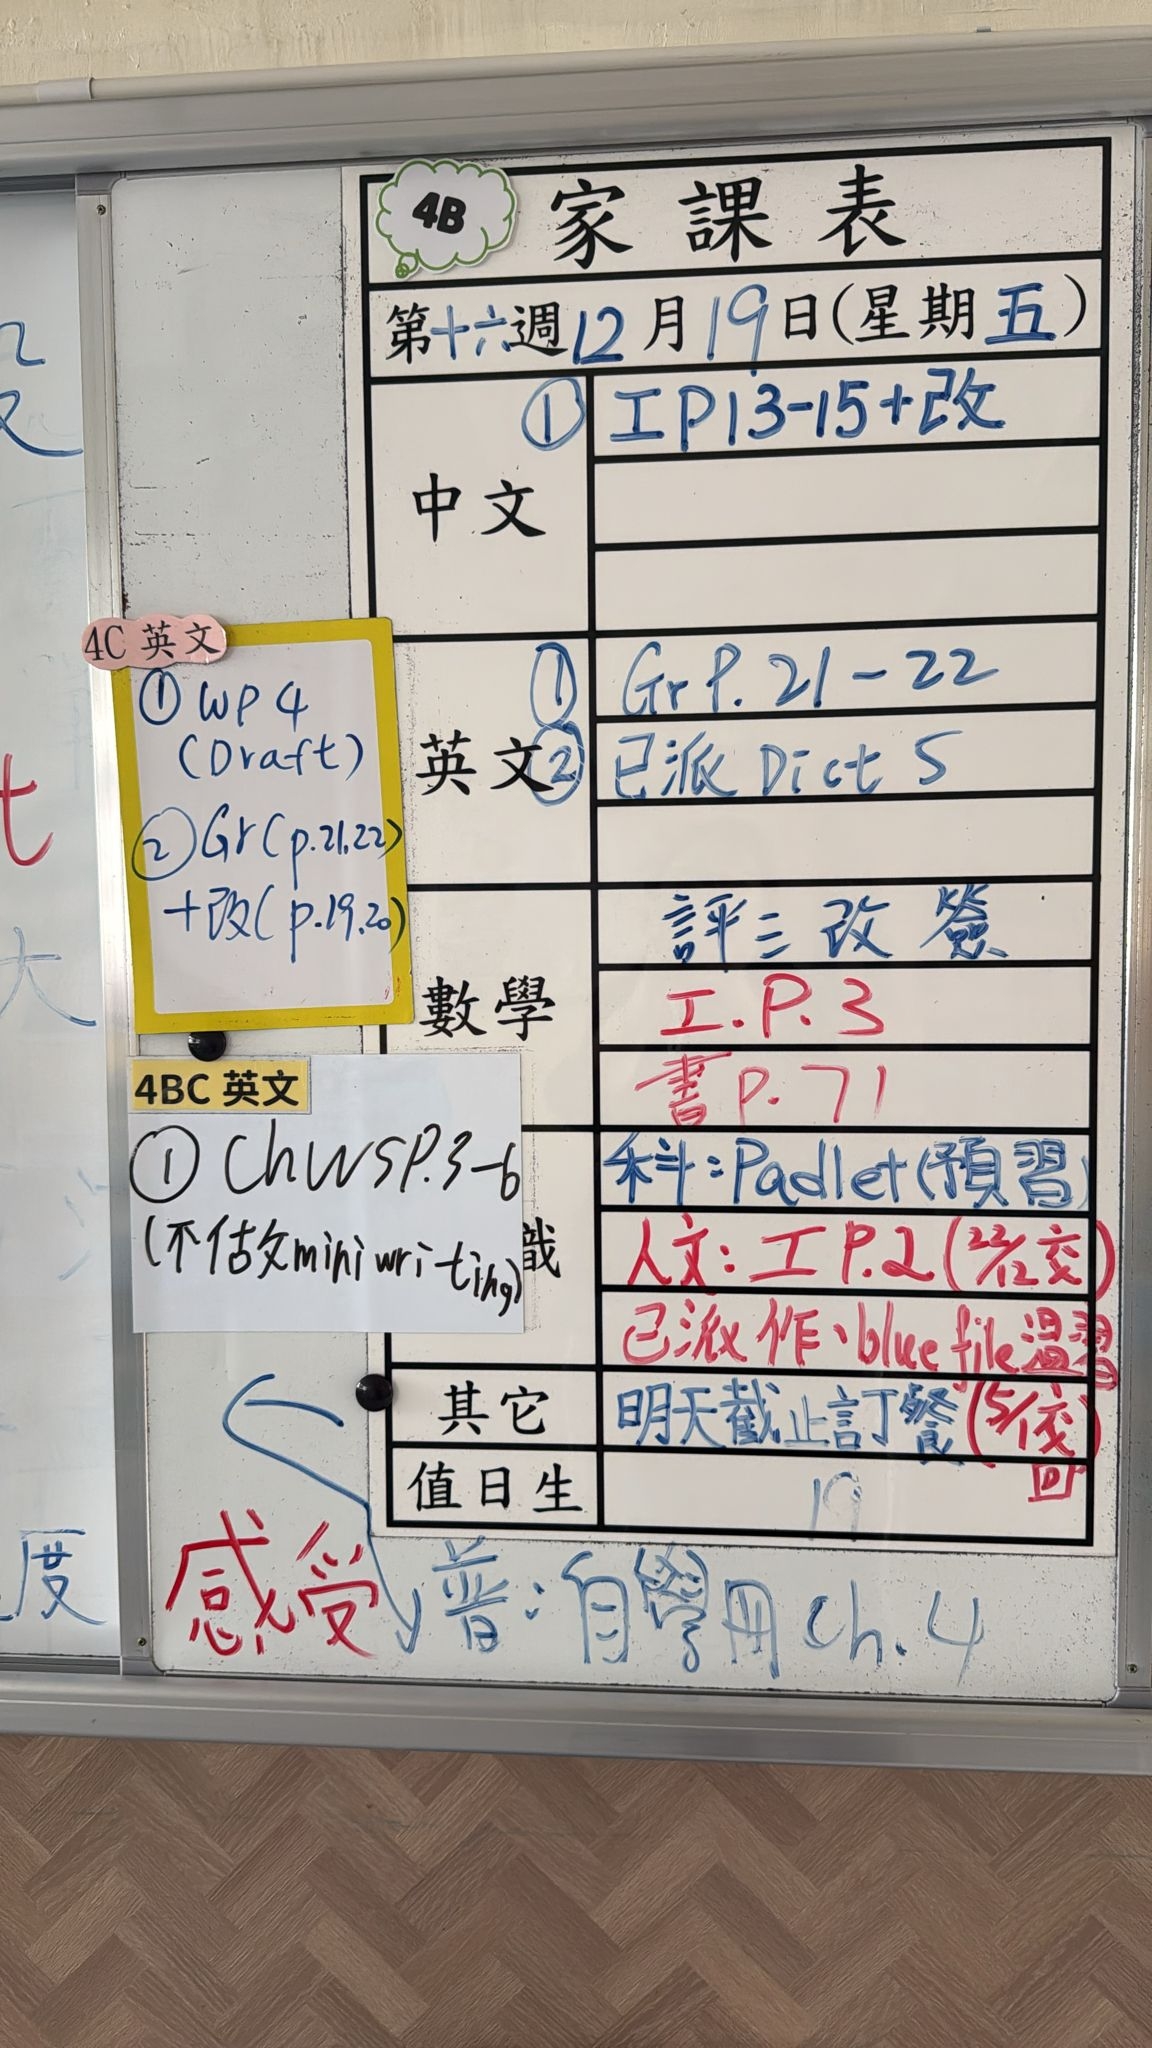 4B
家課表
第十六週12月19日(星期五)
中文
① 工P13-15+改
英文
① Gr P. 21-22
② 已派 Dict 5
數學
評三改簽
工.P.3
書 P. 71
識
科:Padlet(預習)
人文:工P.2(22/12交)
已派作、blue file溫習
其它
明天截止訂餐(5/1交回)
值日生
19
4C 英文
① WP 4
(Draft)
② Gr(p.21,22)
+改(p.19,20)
4BC 英文
① Ch WS P.3-6
(不估文mini writing)
感受
普:自學冊 Ch. 4
度
大
t